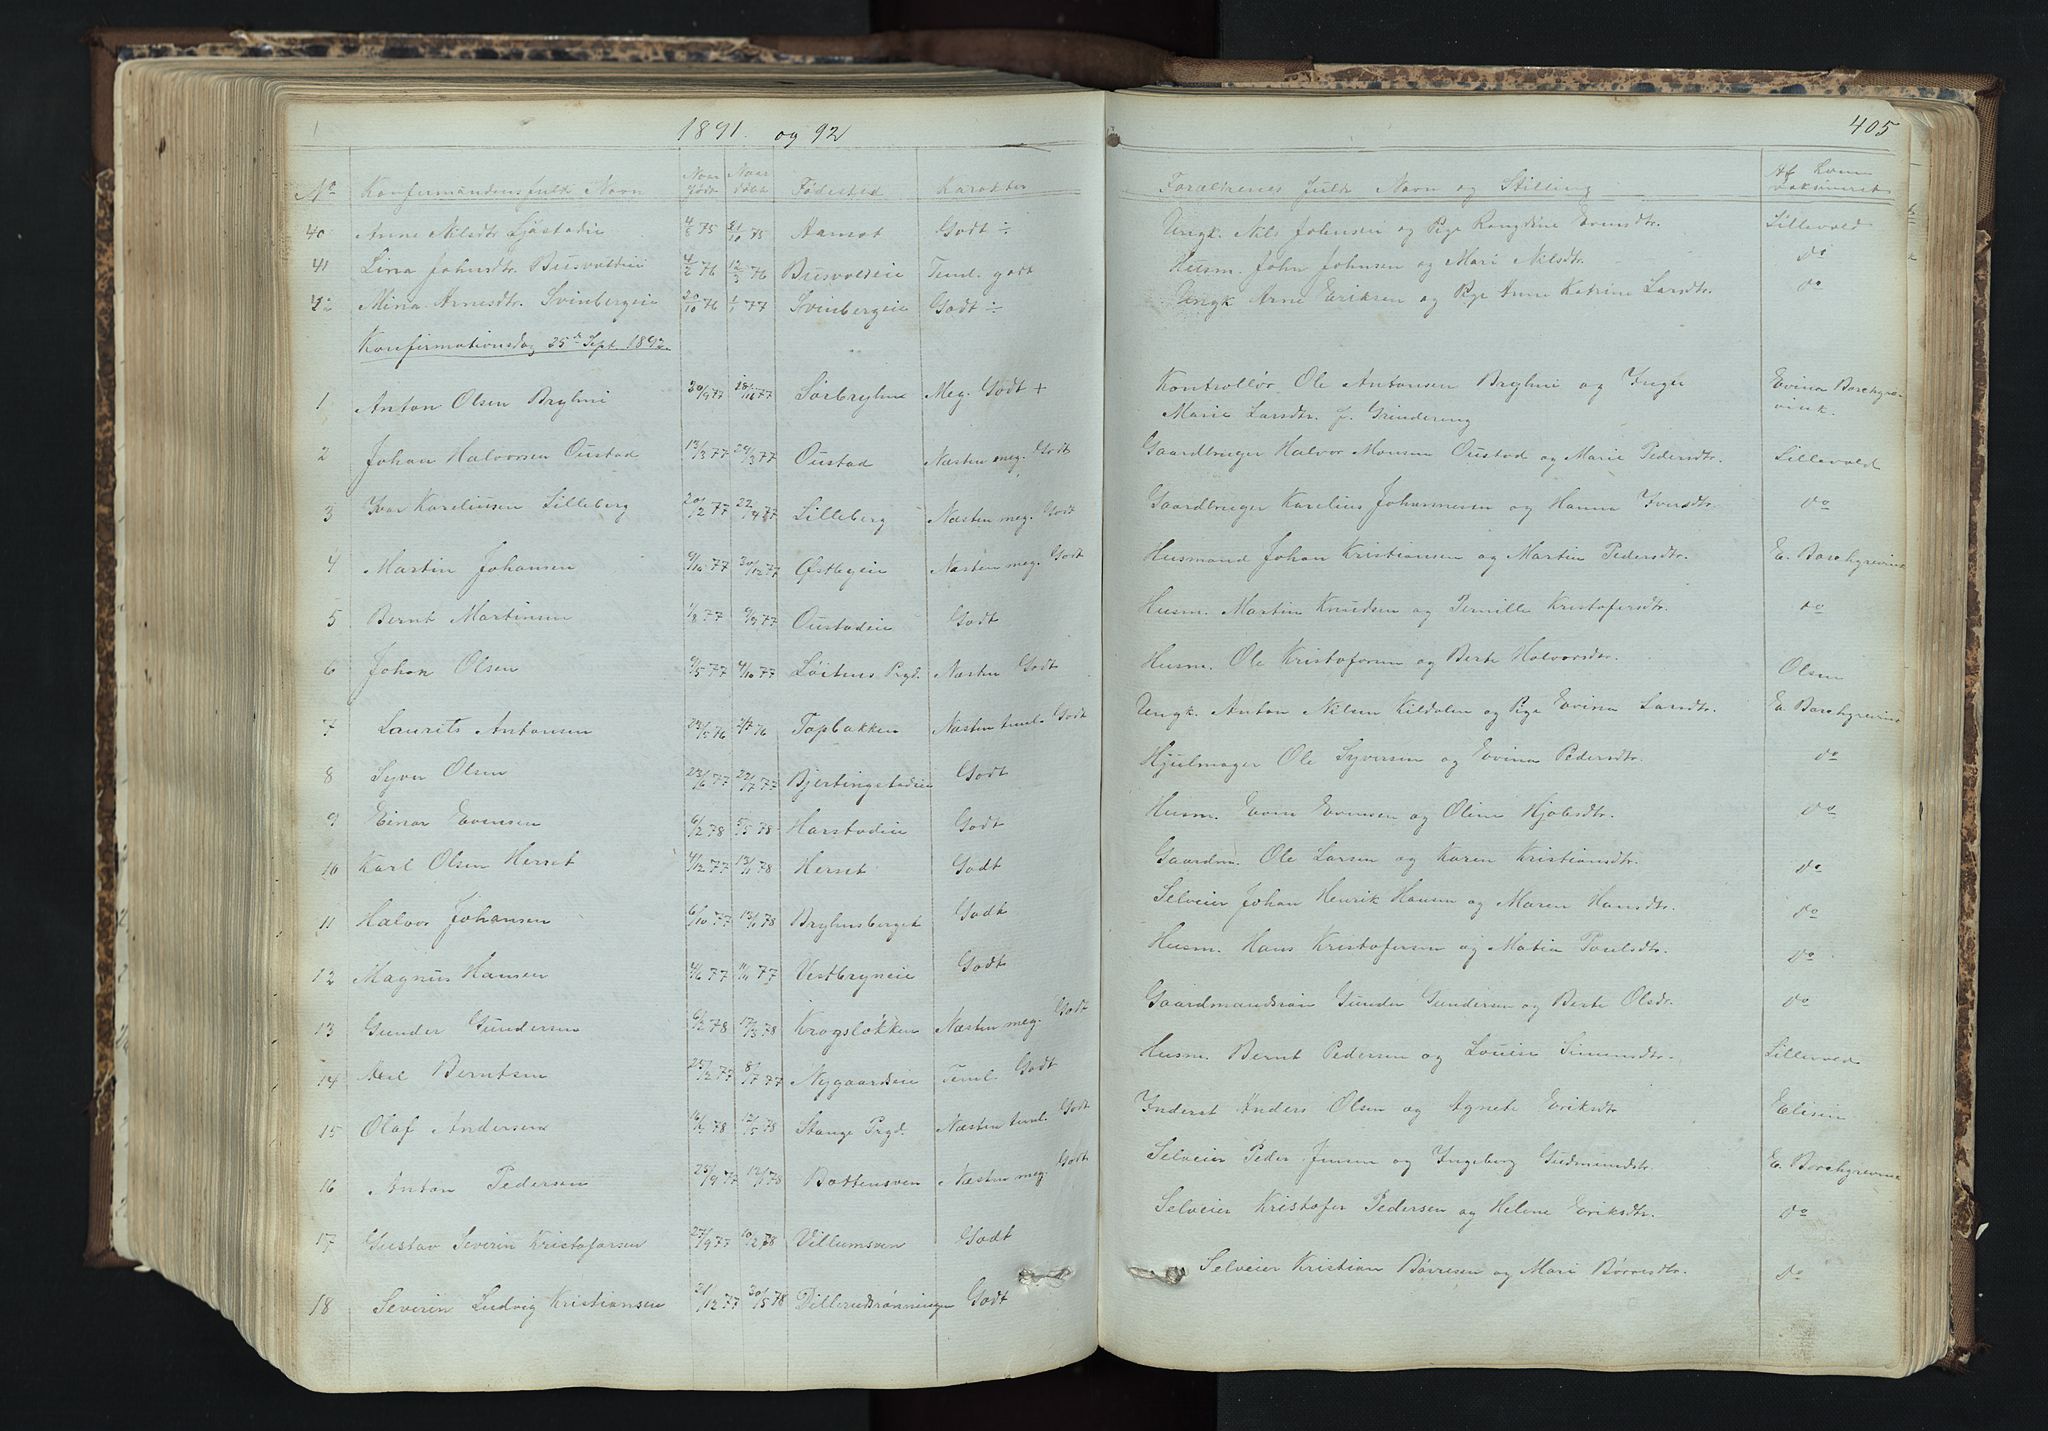 1891. og 92
405
No Konfirmandens fulde Navn Naar født Naar døbt Fødested Karakter Forældrenes fulde Navn og Stilling Af hvem vaksineret
40 Anne Nilsdtr. 4/8 75 75 Aamot Godt ÷ Ungk. Nils Johnsen og Pige Evensdtr. Lillevold
41 Lina Johnsdtr. Busvoldeie 4/2 76 12/3 76 Busvoldeie Teml. godt Husm. John Johnsen og Mari Nilsdtr. do
42 Mina Arnesdtr. Svinbergeie 20/10 76 1/1 77 Svinbergeie Godt ÷ Ungk Arne Eriksen og Pige Anne Katrine Larsdtr. do
Konfirmationsdag 25de Sept. 1892
1 Anton Olsen Bryhni 30/9 77 18/11 77 Sørbryhni Meg. Godt + Kontrollør Ole Antonsen Bryhni og Inger
Marie Larsdtr. f. Grindereng Evina Borchgrevink.
2 Johan Halvorsen Oustad 13/3 77 29/3 77 Oustad Næsten meg. Godt Gaardbruger Halvor Monsen Oustad og Marie Pedersdtr. Lillevold
3 Ivar Kareliusen Lilleberg 20/2 77 22/4 77 Lilleberg Næsten meg. Godt Gaardbruger Karelius Johannesen og Hanna Iversdtr. do
4 Martin Johansen 9/10 77 30/12 77 Østbyeie Næsten meg. Godt Husmand Johan Kristiansen og Martin Pedersdtr. E. Borchgrevink
5 Bernt Martinsen 1/8 77 9/9 77 Oustadeie Godt Husm. Martin Knudsen og Pernille Kristofersdtr. do
6 Johan Olsen 9/5 77 4/10 77 Løitens Prgd. Næsten Godt Husm. Ole Kristofersen og Berte Halvorsdtr. Olsen
7 Laurits Antonsen 23/5 76 2/7 76 Tapbakken Næsten teml. Godt Ungk. Anton Nilsen Kildalen og Pige Evina Larsdtr. E. Borchgrevink
8 Syver Olsen 23/6 77 22/7 77 Bjertingstadeie Godt Hjulmager Ole Syversen og Evina Pedersdtr. do
9 Einar Evensen 6/2 78 5/5 78 Harstadeie Godt Husm. Even Evensen og Oline Hjelmsdtr. do
10 Karl Olsen Herset 4/12 77 13/1 78 Herset Godt Gaardm. Ole Larsen og Karen Kristiansdtr. do
11 Halvor Johansen 6/10 77 13/1 78 Bryhnsberget Godt Selveier Johan Henrik Hansen og Maren Hansdtr. do
12 Magnus Hansen 4/6 77 11/11 77 Vestbryneie Godt Husm. Hans Kristofersen og Matia Poulsdtr. do
13 Gunder Gundersen 6/2 78 17/3 78 Krogsløkken Næsten meg. Godt Gaardmandssøn Gunder Gundersen og Berte Olsdtr. do
14 Berntsen 25/2 77 8/7 77 Nygaardseie Teml. Godt Husm. Bernt Pedersen og Louise Simensdtr. Lillevold
15 Olaf Andersen 78 12/5 78 Stange Prgd. Næsten teml. Godt Inderst Anders Olsen og Agnete Eriksdtr Elisin
16 Anton Pedersen 25/9 77 13/1 78 Bottensven Næsten meg. Godt Selveier Peder Jensen og Ingeborg Gudmundsdtr. E. Borchgrevink
17 Gustav Severin Kristofersen 27/9 77 10/2 78 Villumsven Godt Selveier Kristofer Pedersen og Helene Eriksdtr. do
18 Severin Ludvig Kristiansen 21/12 77 30/5 78 Dillerudsrønningen Godt Selveier Kristian Børresen og Mari Børresdtr. do